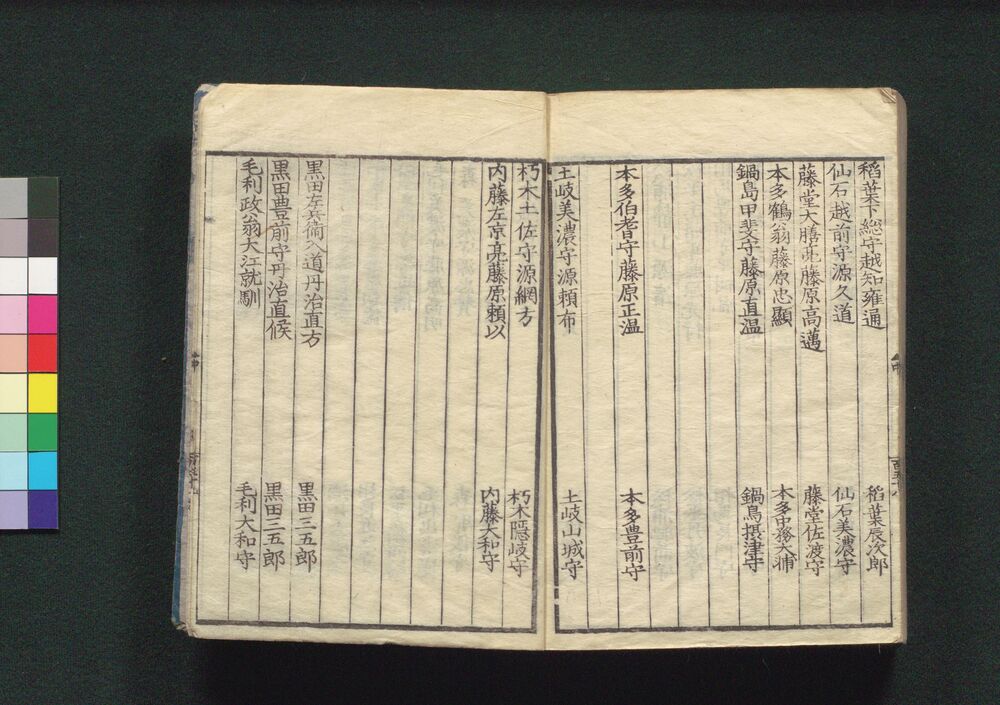 稲葉下総守越知雍通 稲葉辰次郎
仙石越前守源久道 仙石美濃守
藤堂大膳亮藤原高邁 藤堂佐渡守
本多鶴翁藤原忠顯 本多中務大輔
鍋島甲斐守藤原直温 鍋島摂津守
本多伯耆守藤原正温 本多豊前守
土岐美濃守源頼布 土岐山城守
朽木土佐守源綱方 朽木隠岐守
内藤左京亮藤原頼以 内藤大和守
黒田左兵衛入道丹治直方 黒田三五郎
黒田豊前守丹治直候 黒田三五郎
毛利政翁大江就馴 毛利大和守